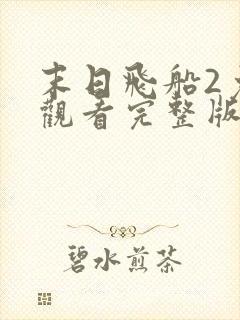 末日飛船2
觀看完整版
碧水煎茶